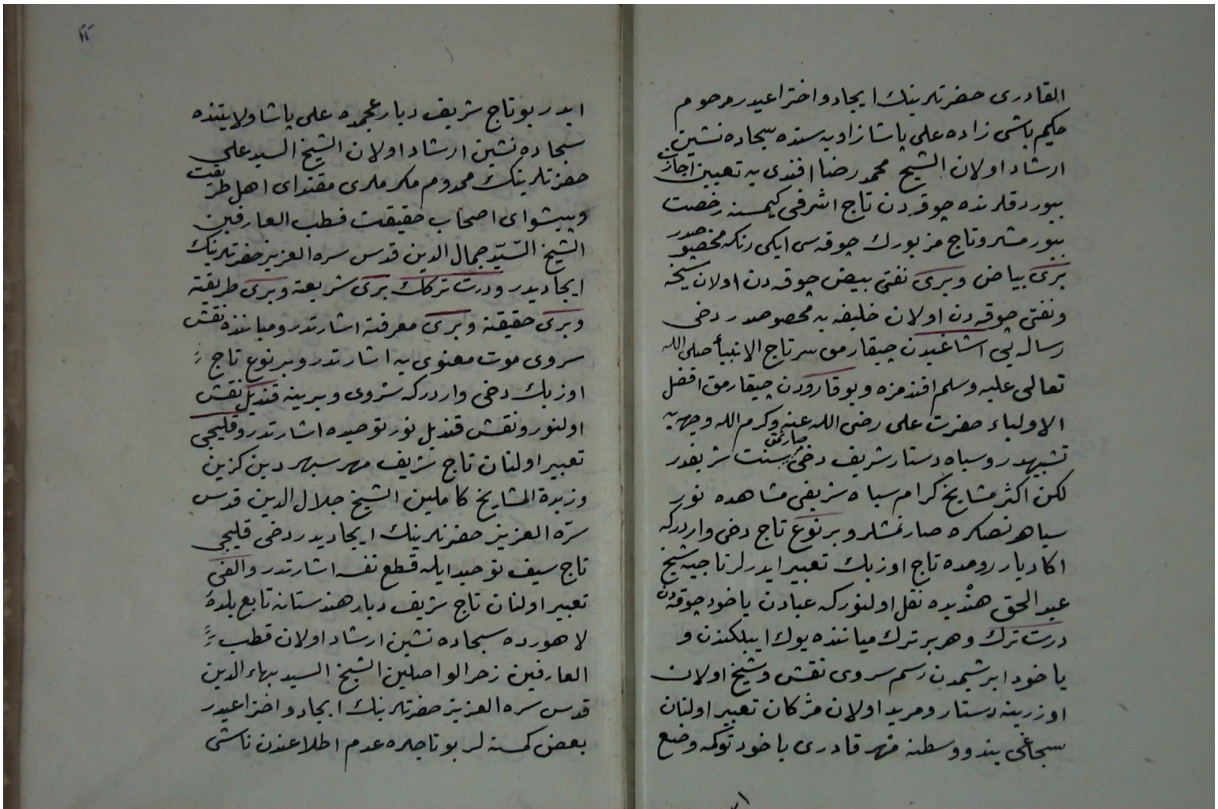 القادری حضرتلرینك ایجاد و اختراعیدر مرحوم
حکیم باشی زاده علی پاشا زاویه سنده سجاده نشین
ارشاد اولان الشیخ محمد رضا افندی یه تعیین اجازت
بیوردقلرنده چوقه دن تاج اشرفی کیمسنه رخصت
بیورمشلر و تاج مزبورك چوقه سی ایکی رنکه مخصوصدر
بری بیاض و بری نفتی بیض چوقه دن اولان شیخه
و نفتی چوقه دن اولان خلیفه یه مخصوصدر دخی
رساله یی اشاغیدن چیقارمق سرتاج الانبیأ صلی الله
تعالی علیه وسلم افندمزه و یوقارودن چیقارمق افضل
الاولیاء حضرت علی رضی الله عنه و کرم الله وجهه یه
تشبیهدر و سیاه دستار شریف دخی صارمق سنت شریفدر
لکن اکثر مشایخ کرام سیاه شریفی مشاهده نور
سیاهدنصکره صارنمشلر و بر نوع تاج دخی واردرکه
اکا دیار رومده تاج اوزبك تعبیر ایدرلر تاجیه شیخ
عبد الحق هندیده نقل اولنورکه عبادن یاخود چوقه دن
درت ترك و هر بر ترك میاننده یوك ایپلکندن و
یاخود ابریشمدن رسم سروی نقش و شیخ اولان
اوزرینه دستار و مرید اولان مژکان تعبیر اولنان
سجاغی بند و وسطنه مهر قادری یاخود توکمه وضع
ایدر بو تاج شریف دیار عجمده علی پاشا ولایتنده
سجاده نشین ارشاد اولان الشیخ السید علی
حضرتلرینك مخدوم مکرملری مقتدای اهل طریقت
و پیشوای اصحاب حقیقت قطب العارفین
الشیخ السّید جمال الدین قدس سره العزیز حضرتلرینك
ایجادیدر و درت ترکك بری شریعته و بری طریقته
و بری حقیقته و بری معرفته اشارتدر و میاننده نقش
سروی موت معنوی یه اشارتدر و بر نوع تاج
اوزبك دخی واردرکه سروی و یرینه قندیل نقش
اولنور و نقش قندیل نور توحیده اشارتدر و قلیجی
تعبیر اولنان تاج شریف مهر سپهر دین کزین
و زبدة المشایخ کاملین الشیخ جلال الدین قدس
سرّه العزیز حضرتلرینك ایجادیدر دخی قلیجی
تاج سیف توحید ایله قطع نفسه اشارتدر و الفی
تعبیر اولنان تاج شریف دیار هندستانه تابع بلدۀ
لاهورده سجاده نشین ارشاد اولان قطب
العارفین زخر الواصلین الشیخ السید بهاء الدین
قدس سره العزیز حضرتلرینك ایجاد و اختراعیدر
بعض کمسنه لر بو تاجلره عدم اطلاعندن ناشی